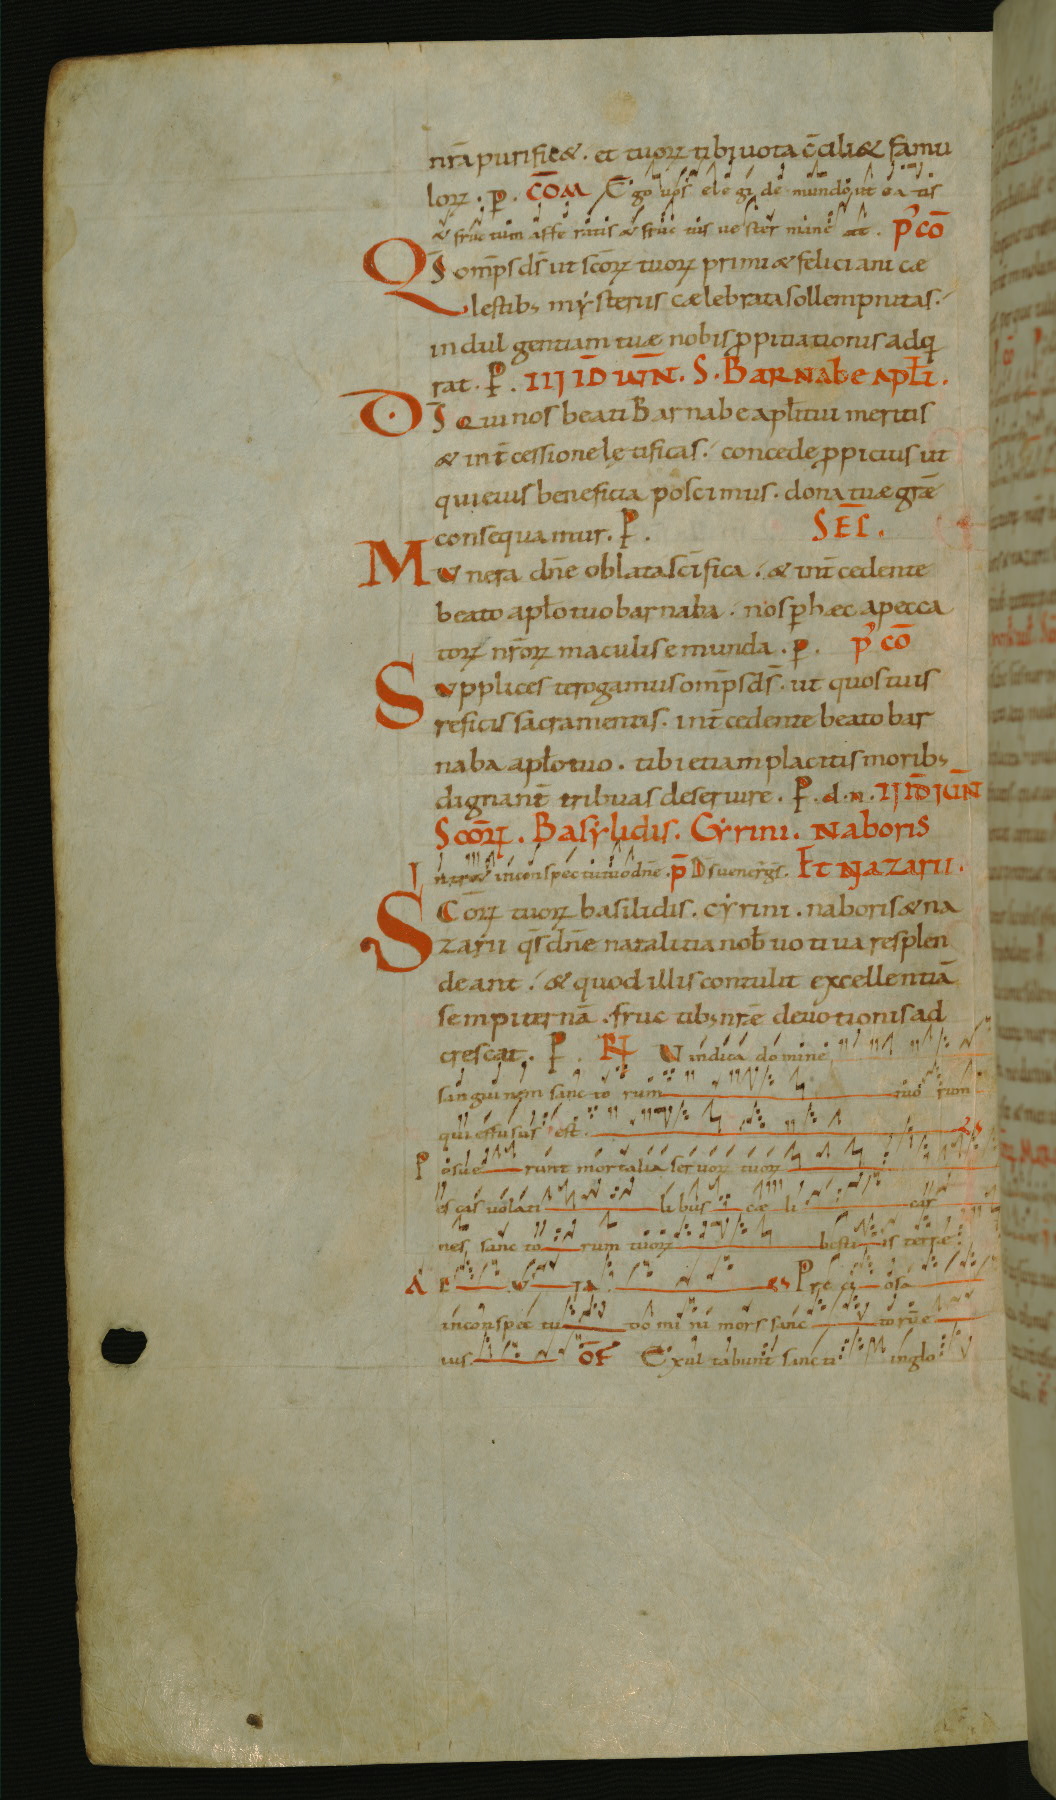 nr̄a purificet. et tuorꝝ tibi vota c̄ciliet famu
lorꝝ. ꝑ. C̄OM Ego vos elegi de mundo ut eatis
et fructum afferatis et fructus vester mane at. p̾ cō
QS omp̄s ds̄ ut scōrꝝ tuorꝝ primi et feliciani cæ
lestib; mẏsteriis cælebrata sollempnitas.
indulgentiam tuæ nobis ꝓpitiationis adq
rat. P. IIIJ ID̄ IUN̄. S. BARNabe apłi.
DS Qui nos beati Barnabe apłi tui meritis
et int̄cessione lętificas. concede ꝓpicius ut
qui eius beneficia poscimus. dona tuæ grāe
consequamur. P. SEC̄.
Munera dn̄e oblata sc̄ifica. et int̄cedente
beato apło tuo barnaba. nos ꝑ hæc a pecca
torꝝ nr̄orꝝ maculis emunda. ꝑ. p̾ cō
Supplices te rogamus omp̄s ds̄. ut quos tuis
reficis sacramentis. int̄cedente beato bar
naba apło tuo. tibi etiam placitis morib;
dignant̄ tribuas deservire. P. d. n. IIJ ID̄ IUN̄
Scōrꝝ. Basẏlidis. Cẏrini. Naboris
Intret in conspectu tuo dn̄e. p̄ Ds venerḡs. Et Nazarii.
SCōrꝝ tuorꝝ basilidis. cẏrini. naboris et na
zarii qs̄ dn̄e natalitia nob̄ votiva resplen
deant. et quod illis contulit excellentiā
sempiternā. fructib; nr̄e devotionis ad
crescat. P. R̄ Vindica domine
sanguinem sanctorum tuorum
qui effusus est.
Posuerunt mortalia servorꝝ tuorꝝ
escas volatilibus cæli car
nes sanctorum tuorꝝ bestiis terræ.
A E V IA. Preciosa
in conspectu domini mors sanctorū e
ius. OF̄ Exultabunt sancti in glo